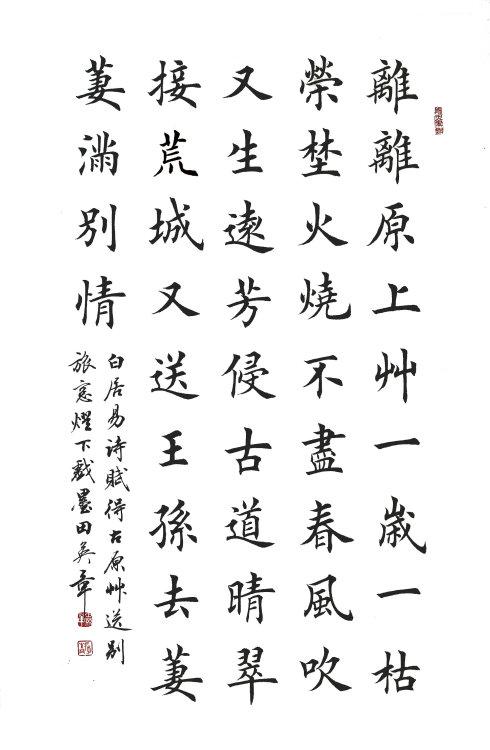 離離原上艸一歲一枯
榮埜火燒不盡春風吹
又生遠芳侵古道晴翠
接荒城又送王孫去萋
萋滿別情
白居易诗賦得古原艸送别
旅窓燈下戲墨田英章